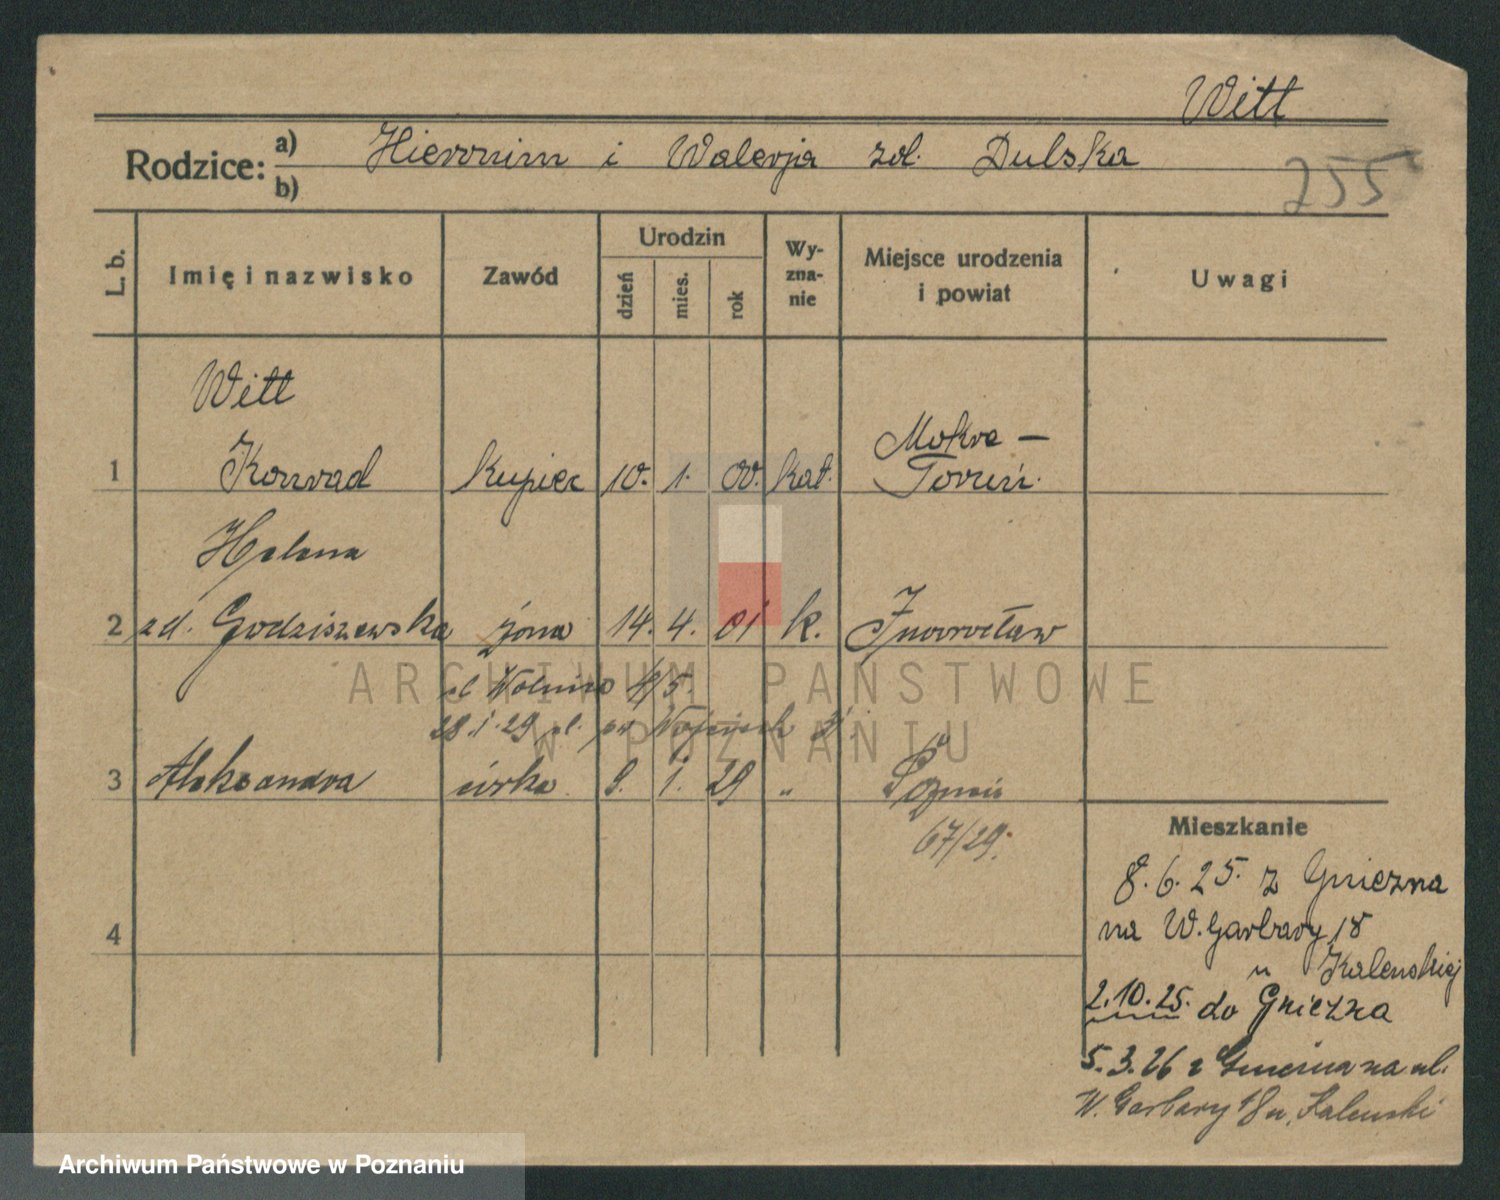 Witt
Rodzice: a) Hieronim i Walerja zd. Dulska
b)
255
L. b. Imię i nazwisko Zawód Urodzin dzień mies. rok Wy-zna-nie Miejsce urodzenia i powiat Uwagi
Witt
Mokre –
1 Konrad kupiec 10. 1. 00. kat. Toruń.
Helena
2 zd. Godziszewska żona 14. 4. 01 k. Inowrocław
ul Wolnica 4/5.
28.1.29 ul.
3 Aleksandra córka 9. 1. 29 „ Poznań
67/29.
Mieszkanie
8.6.25. z Gniezna
4
na W. Garbary 18
u Kalenskiej
2.10.25. do Gniezna
5.3.26 z Gniezna na ul.
W. Garbary 18 u. Kalenski
ARCHIWUM PAŃSTWOWE
W POZNANIU
Archiwum Państwowe w Poznaniu